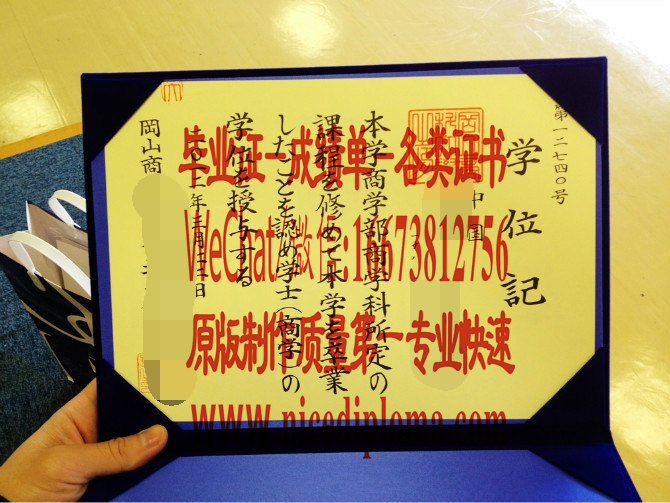 第一二七四〇号
学位記
中国
本学商学部商学科所定の
課程を修めて本学を卒業
したことを認め学士(商学)の
学位を授与する
年三月
岡山商
毕业证一成绩单一各类证书
WeChat 微信:16673812756
原版制作质量第一专业快速
www.nicediploma.com